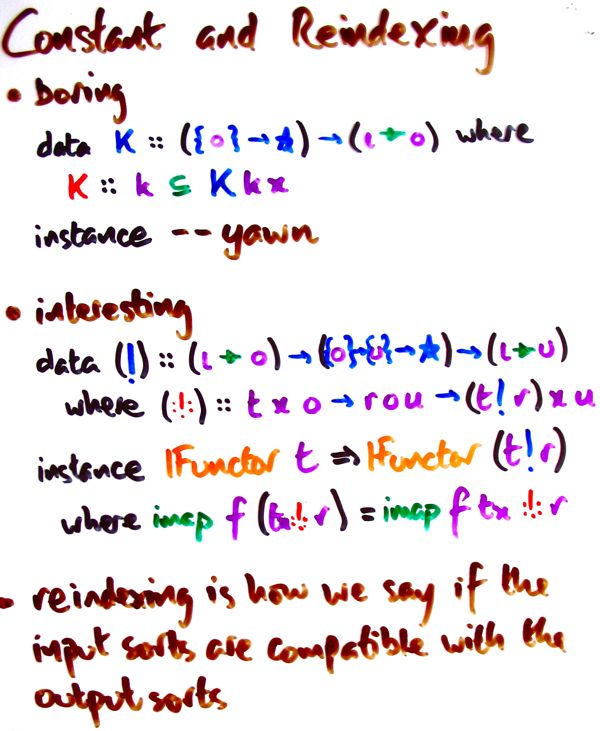 Constant and Reindexing
• boring
data K :: ({o} → ★) → (ι ⇸ o) where
K :: k ⊆ K k x
instance -- yawn
• interesting
data (!) :: (ι ⇸ o) → ({o} → {υ} → ★) → (ι ⇸ υ)
where (:!:) :: t x o → r o u → (t ! r) x u
instance IFunctor t ⇒ IFunctor (t ! r)
where imap f (tx :!: r) = imap f tx :!: r
• reindexing is how we say if the
input sorts are compatible with the
output sorts